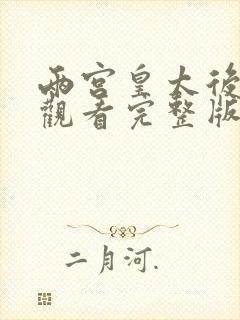 兩宮皇太後
觀看完整版
二月河.